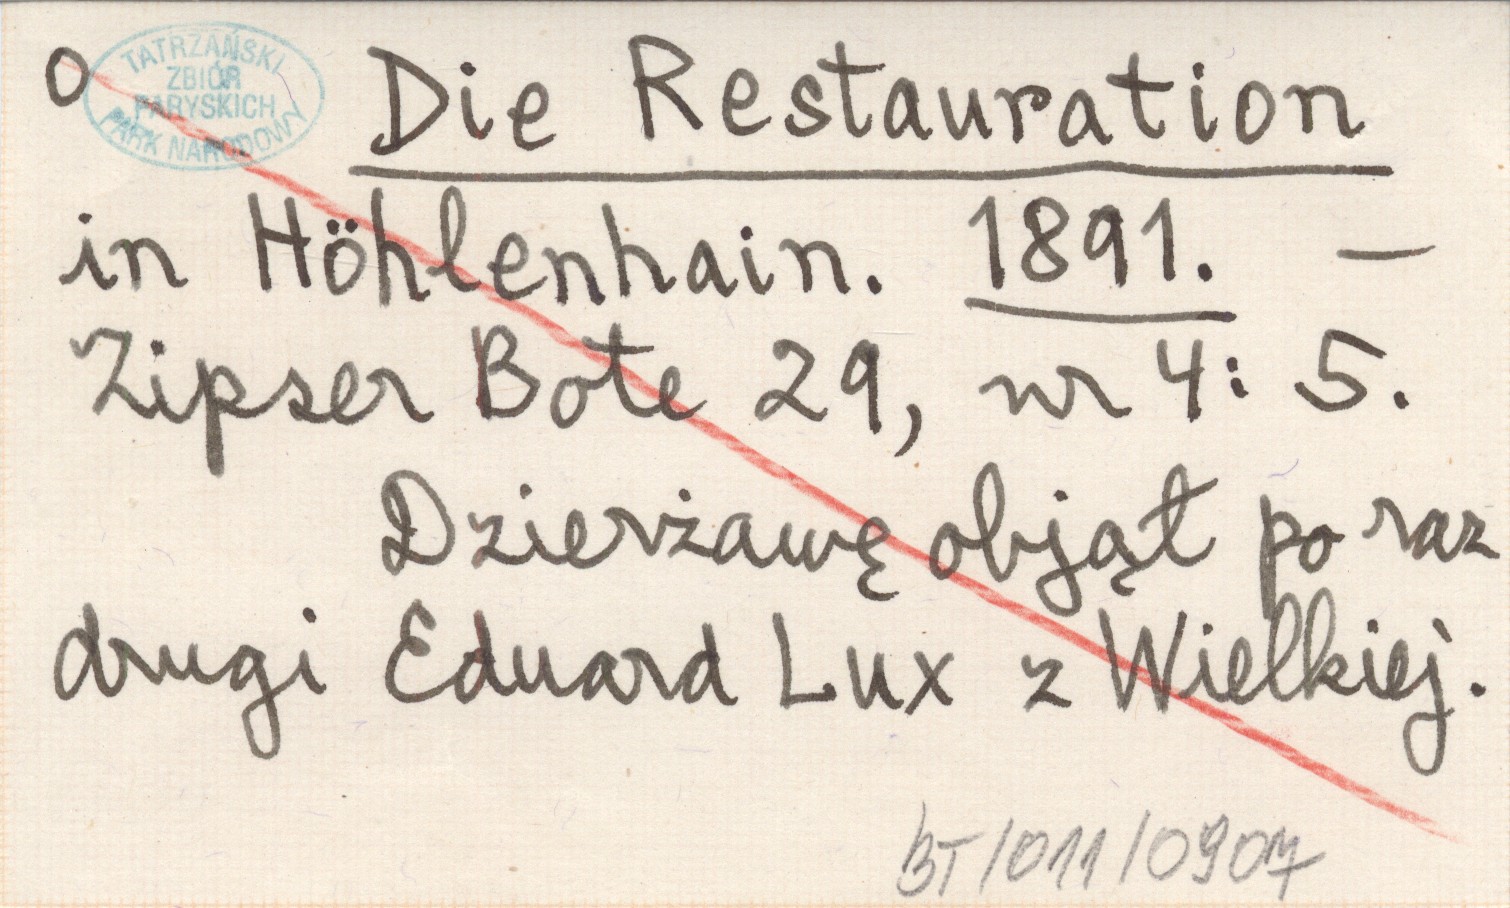 O
TATRZAŃSKI
ZBIÓR
PARYSKICH
PARK NARODOWY
Die Restauration
in Höhlenhain. 1891. —
Zipser Bote 29, nr 4: 5.
Dzierżawę objął po raz
drugi Eduard Lux z Wielkiej.
BT/011/0907